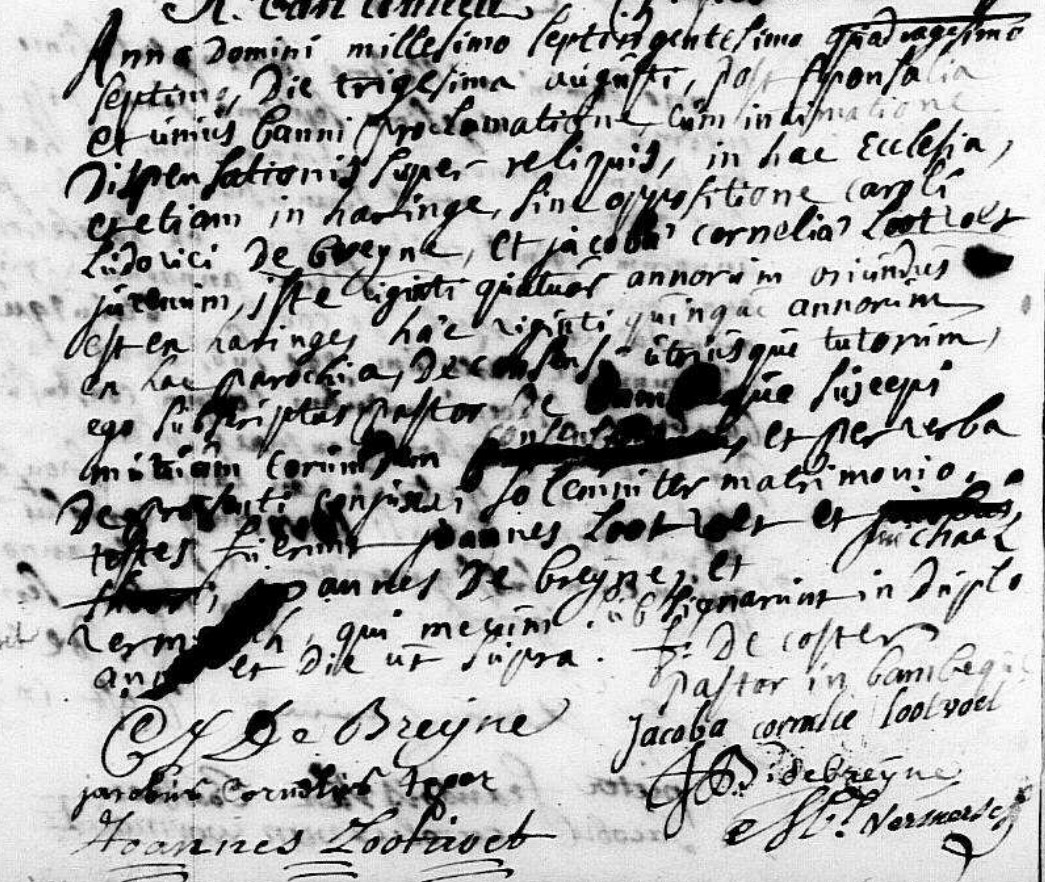 Anno Domini millesimo septingentesimo quadragesimo
septimo, Die trigesima augusti, post sponsalia
et unius banni proclamatione cum intimatione
Dispensationis super reliquis, in hac Ecclesia,
et etiam in haringe, sine oppositione caroli
Ludovici De breyne, et jacoba cornelia Lootvoet
juvenum, iste viginti quatuor annorum oriundus
est en haringe, haec viginti quinque annorum
en hac parochia, De consensu utriusque tutorum,
ego subscriptus pastor De bambeque suscepi
mutuum eorundem consensum, et per verba
De praesenti conjunxi solemniter matrimonio,
testes fuerunt joannes Lootvoet et
joannes De breyne, et michael
vermersch, qui mecum subsignarunt in duplo
anno et Die ut supra. F: De coster
pastor in bambeque
C L De Breyne
Jacoba cornelie lootvoet
jacobus Cornelius
J B: debreyne
Joannes Lootvoet
Vermersch